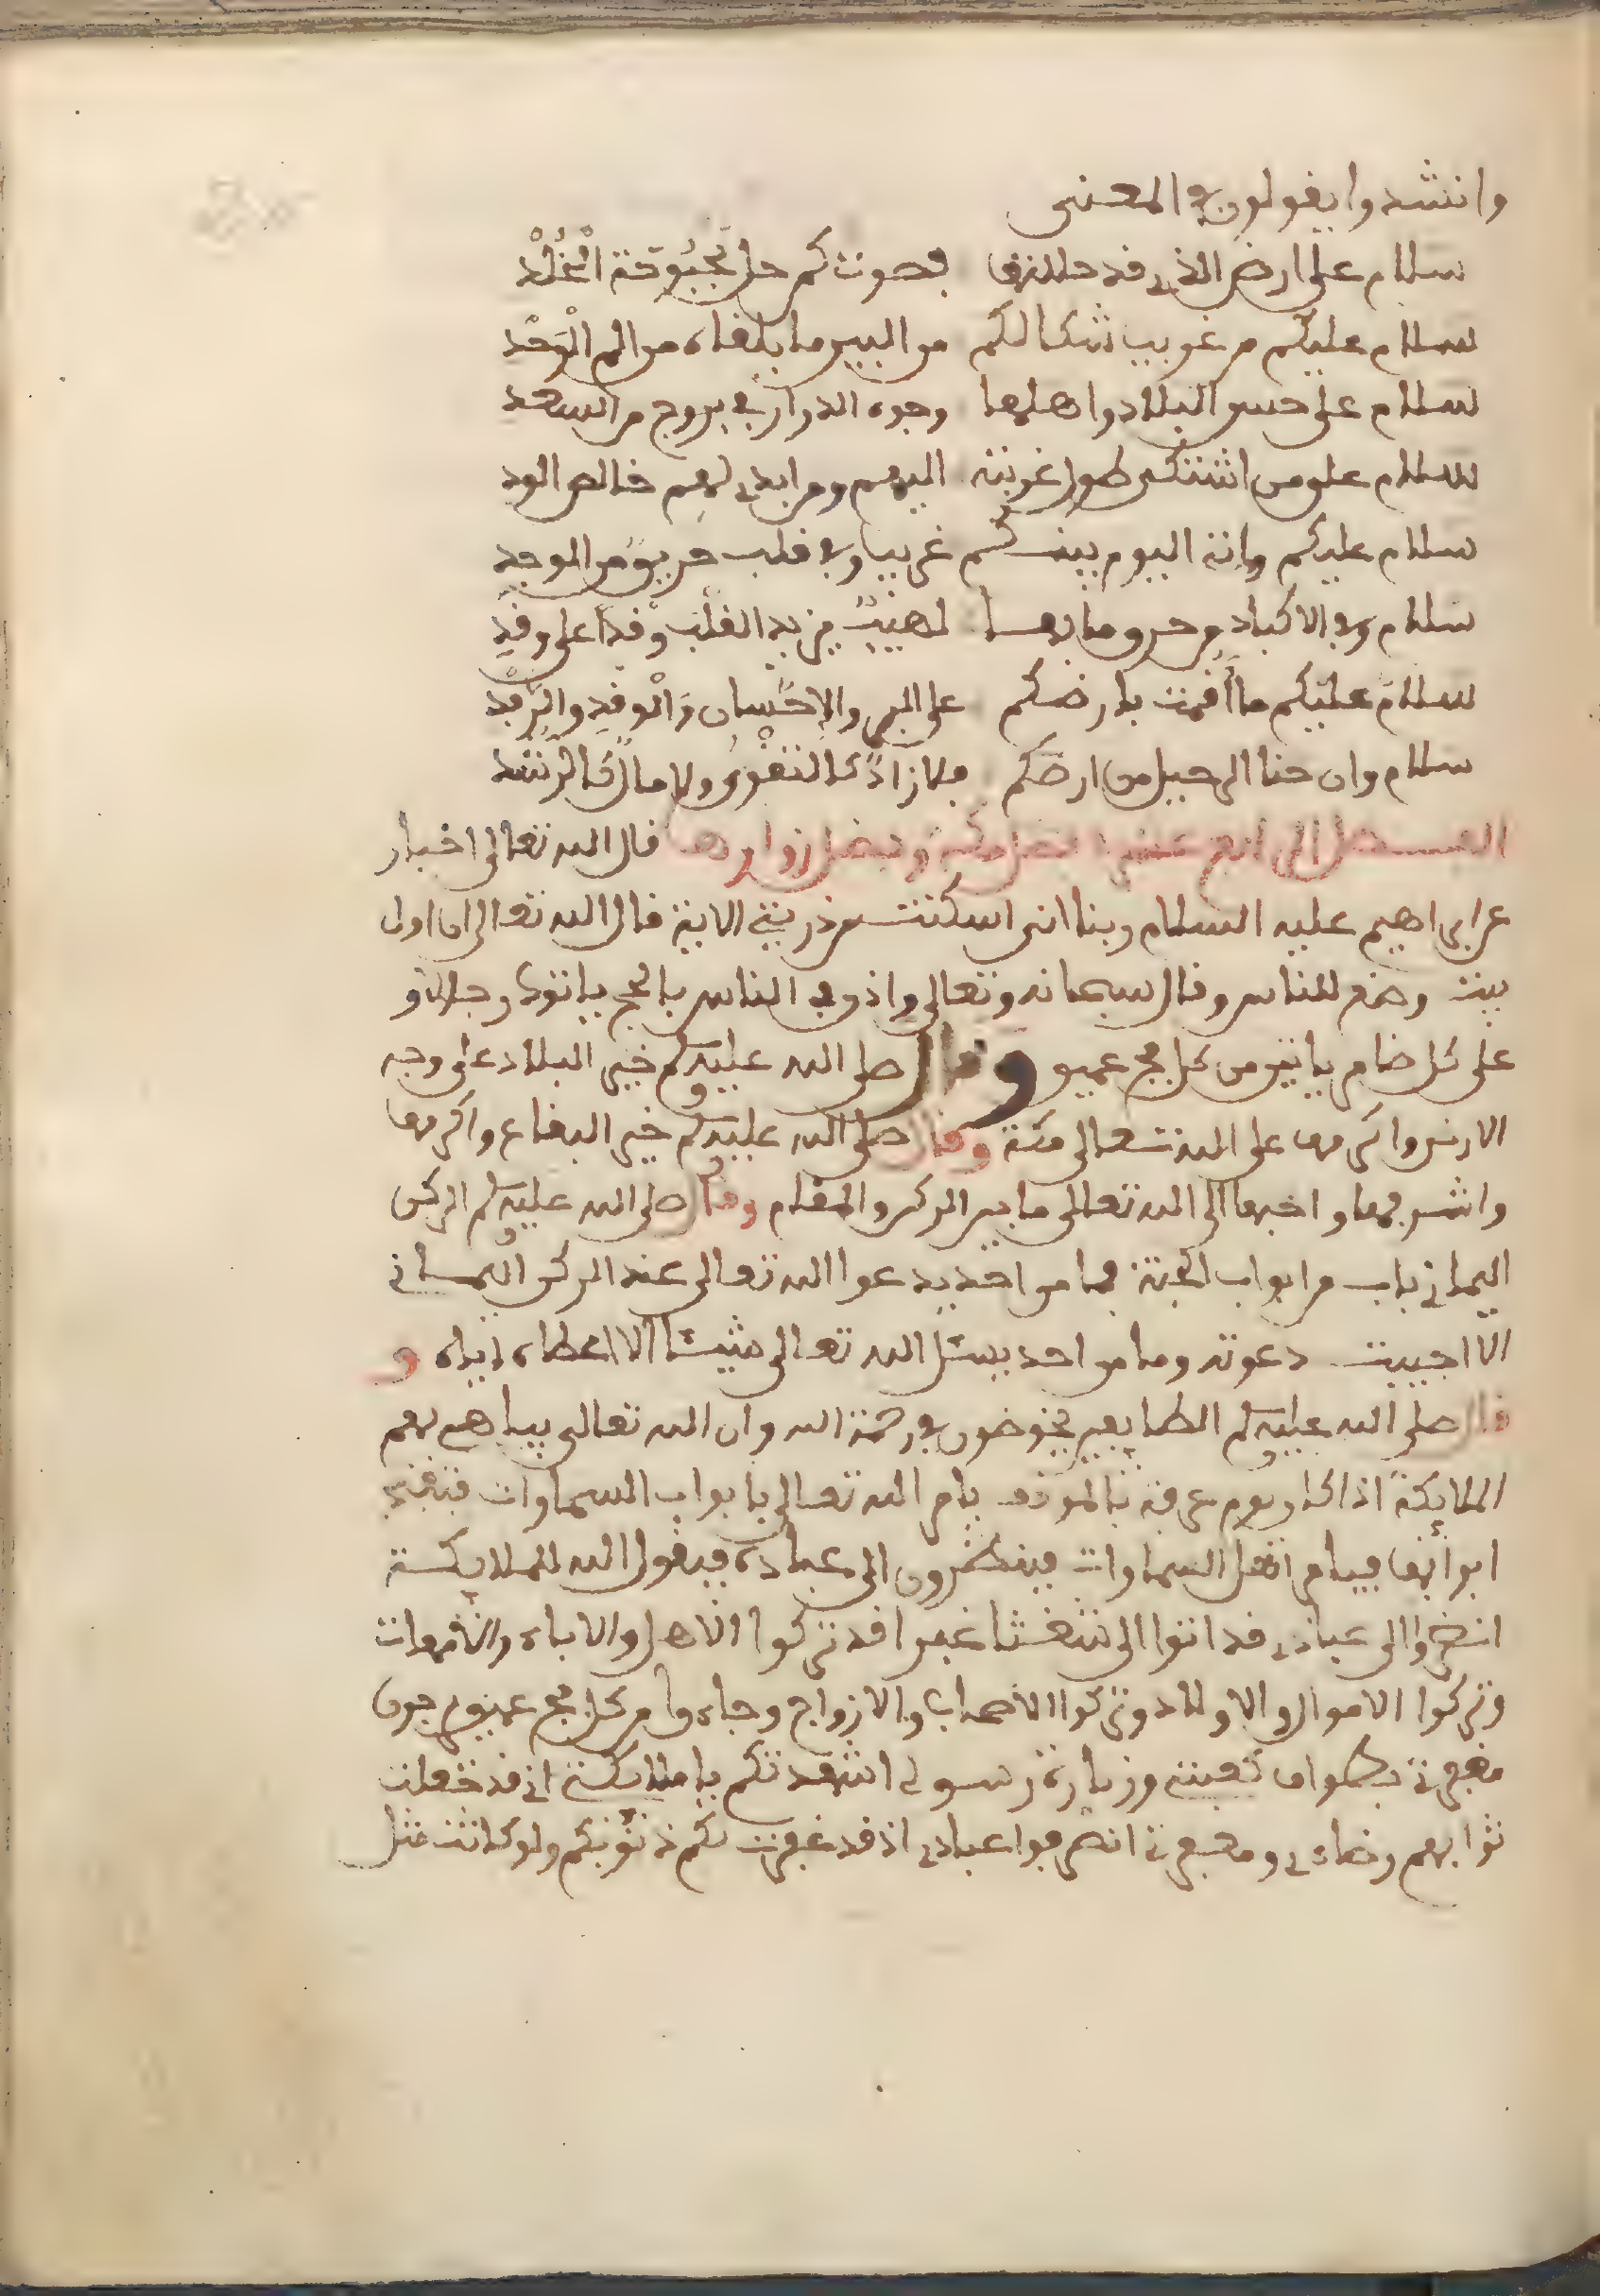 وانشدوا يقولون في المعنى
سلام على ارض الذي قد حللتها فصوت كم حل بحبوحة الخلد
سلام عليكم من غريب شكا لكم من البين ما يلقاه من الم الوجد
سلام على حسن البلاد واهلها وجوه الدرار في بروج من السعد
سلام على من اشتكى طول غربته اليهم ومن ابدى لهم خالص الود
سلام عليكم وانه اليوم بينكم غريبا وفي قلب حريق من الوجد
سلام وفي الاكباد من حر وما بها لهيب يزيد القلب وقدا على وقد
سلام عليكم ما أقمت بارضكم على البر والاحسان والوفد والرفد
سلام وان حنا الى حبل من ارضكم فلا زاد كالتقوى ولا مال كالرشد
الفصل الرابع عشر فضل مكة وفضل زوارها قال الله تعالى اخبار
عن ابراهيم عليه السلام ربنا انى اسكنت من ذريتي الاية قال الله تعالى ان اول
بيت وضع للناس وقال سبحانه وتعالى واذن في الناس بالحج ياتوك رجالا و
على كل ضامر ياتين من كل فج عميق وقال صلى الله عليه وسلم خير البلاد على وجه
الارض واكرمها على الله تعالى مكة وقال صلى الله عليه وسلم خير البقاع واكرمها
واشرفها واحبها الى الله تعالى ما بين الركن والمقام وقال صلى الله عليه وسلم الركن
اليماني باب من ابواب الجنة فما من احد يدعوا الله تعالى عند الركن اليماني
الا اجيبت دعوته وما من احد يسئل الله تعالى شيئا الا اعطاه اياه و
قال صلى الله عليه وسلم الطايفين يخوضون في رحمة الله وان الله تعالى يباهي بهم
الملايكة اذا كان يوم عرفة بالموقف يامر الله تعالى بابواب السماوات فتفتح
ابوابها فيامر اهل السماوات فينظرون الى عباده فيقول الله للملايكة
انظروا الى عبادي قد اتوا الى شعثا غبرا قد تركوا الاهل والاباء والامهات
وتركوا الاموال والاولاد وتركوا الاصحاب والازواج وجاءوا من كل فج عميق يرجون
مغفرتي بطواف كعبتي وزيارة رسولي اشهدتكم يا ملايكتي اني قد جعلت
ثوابهم رضاءي ومغفرتي انصرفوا عبادي اذ قد غفرت لكم ذنوبكم ولو كانت مثل